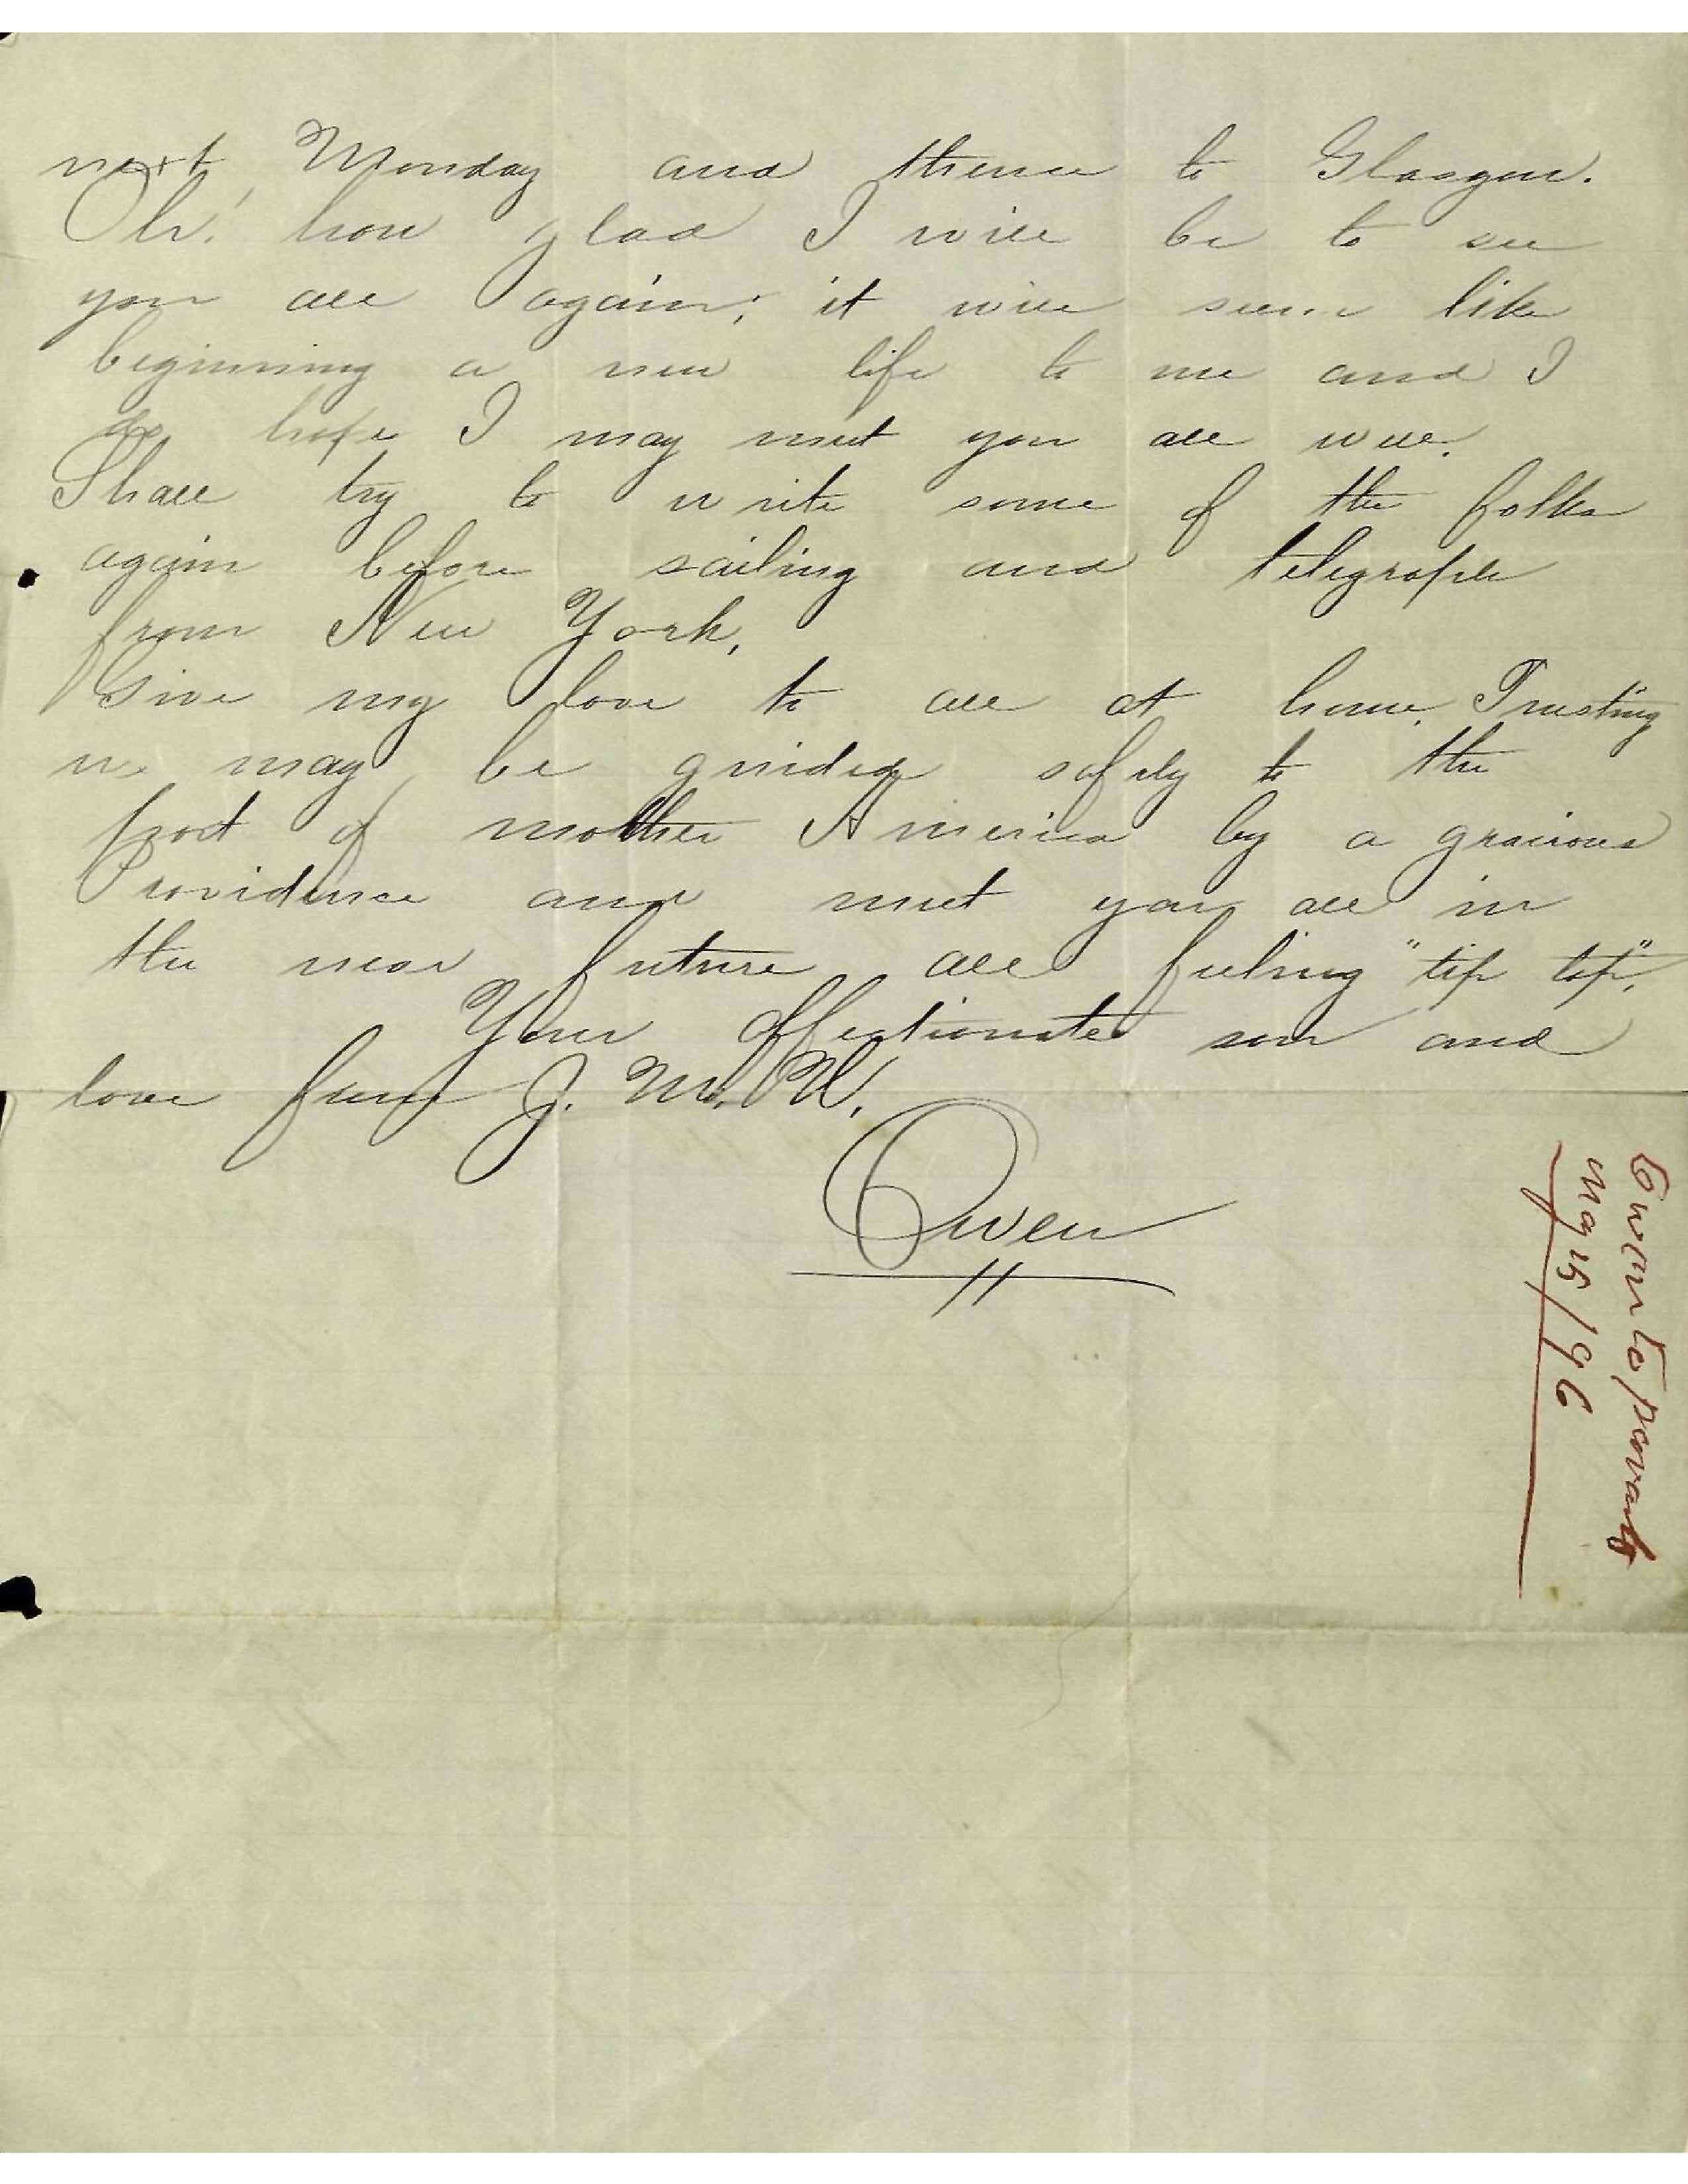 next Monday and thence to Glasgow.
Oh! how glad I will be to see
you all again; it will seem like
beginning a new life to me and I
do hope I may meet you all well.
Shall try to write some of the folks
again before sailing and telegraph
from New York.
Give my love to all at home. Trusting
we may be guided safely to the
port of mother America by a gracious
Providence and meet you all in
the near future all feeling "tip top".
Your affectionate son and
love from J. M. W.
Owen
Owen to parents
May 15/96